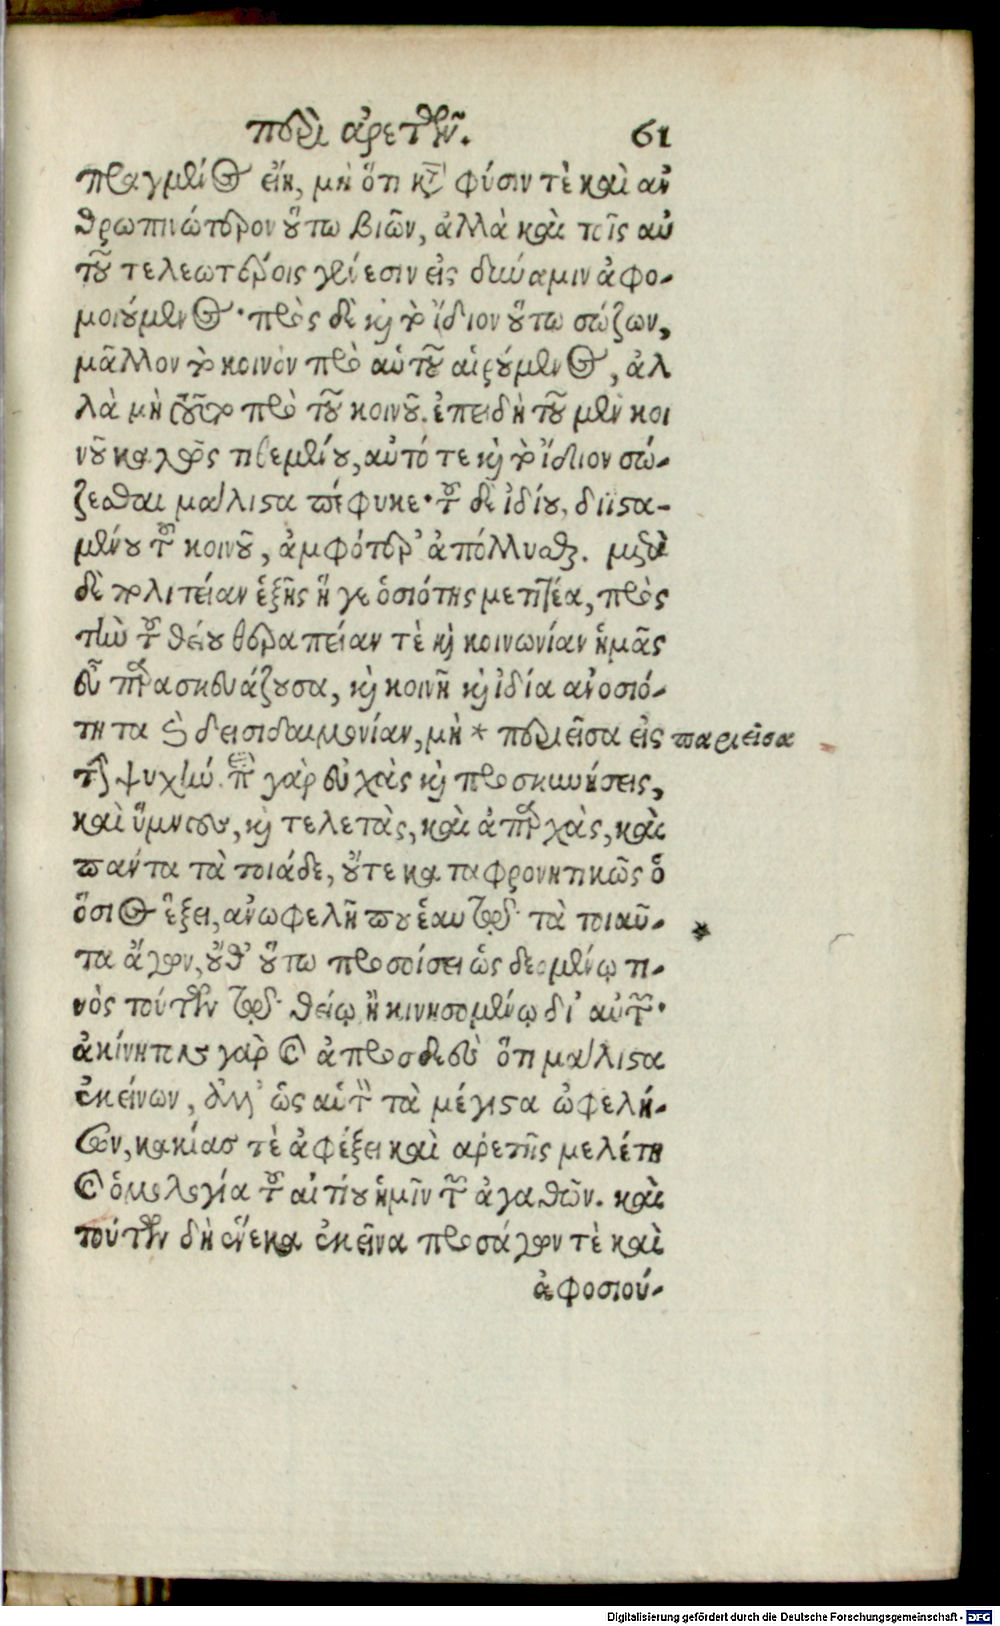 περὶ ἀρετῶν. 61
πραγμένος εἴη, μὴ ὅτι κατὰ φύσιν τὲ καὶ ἀν
θρωπινώτερον οὕτω βιῶν, ἀλλὰ καὶ τοῖς αὐ
τοῦ τελεωτέροις γένεσιν εἰς δύναμιν ἀφο-
μοιούμενος· πρὸς δὲ καὶ τὸ ἴδιον οὕτω σώζων,
μᾶλλον τὸ κοινὸν πρὸ αὑτοῦ αἱρούμενος, ἀλ
λὰ μὴ τοῦτο πρὸ τοῦ κοινοῦ. ἐπειδὴ τοῦ μὲν κοι
νοῦ καλῶς τιθεμένου, αὐτό τε καὶ τὸ ἴδιον σώ-
ζεσθαι μάλιστα πέφυκε· τοῦ δὲ ἰδίου, διϊστα-
μένου τοῦ κοινοῦ, ἀμφότερ' ἀπόλλυσθαι. μετὰ
δὲ πολιτείαν ἑξῆς ἥ γε ὁσιότης μετιτέα, πρὸς
τὴν τοῦ θείου θεραπείαν τὲ καὶ κοινωνίαν ἡμᾶς
εὖ παρασκευάζουσα, καὶ κοινῇ καὶ ἰδία ἀνοσιό-
τητα καὶ δεισιδαιμονίαν, μὴ * περιεῖσα εἰς παριεῖσα
τὴν ψυχὴν. ἐπεὶ γὰρ εὐχὰς καὶ προσκυνήσεις,
καὶ ὕμνους, καὶ τελετὰς, καὶ ἀπαρχὰς, καὶ
πάντα τὰ τοιάδε, οὔτε καταφρονητικῶς ὁ
ὅσιος ἕξει, ἀνωφελῆ που ἑαυτῷ τὰ τοιαῦ- *
τα ἄγων, οὔθ' οὕτω προσοίσει ὡς δεομένῳ τι-
νὸς τούτων τῷ θείῳ ἢ κινησομένῳ δι' αὐτῶν·
ἀκίνητος γὰρ καὶ ἀπροσδεὲς ὅτι μάλιστα
ἐκείνων, ἀλλ' ὡς αὑτὸν τὰ μέγιστα ὠφελή-
σων, κακίας τὲ ἀφέξει καὶ ἀρετῆς μελέτη
καὶ ὁμολογία τοῦ αἰτίου ἡμῖν τῶν ἀγαθῶν. καὶ
τούτων δὴ ἕνεκα ἐκεῖνα προσάγων τὲ καὶ
ἀφοσιού-
Digitalisierung gefördert durch die Deutsche Forschungsgemeinschaft - DFG